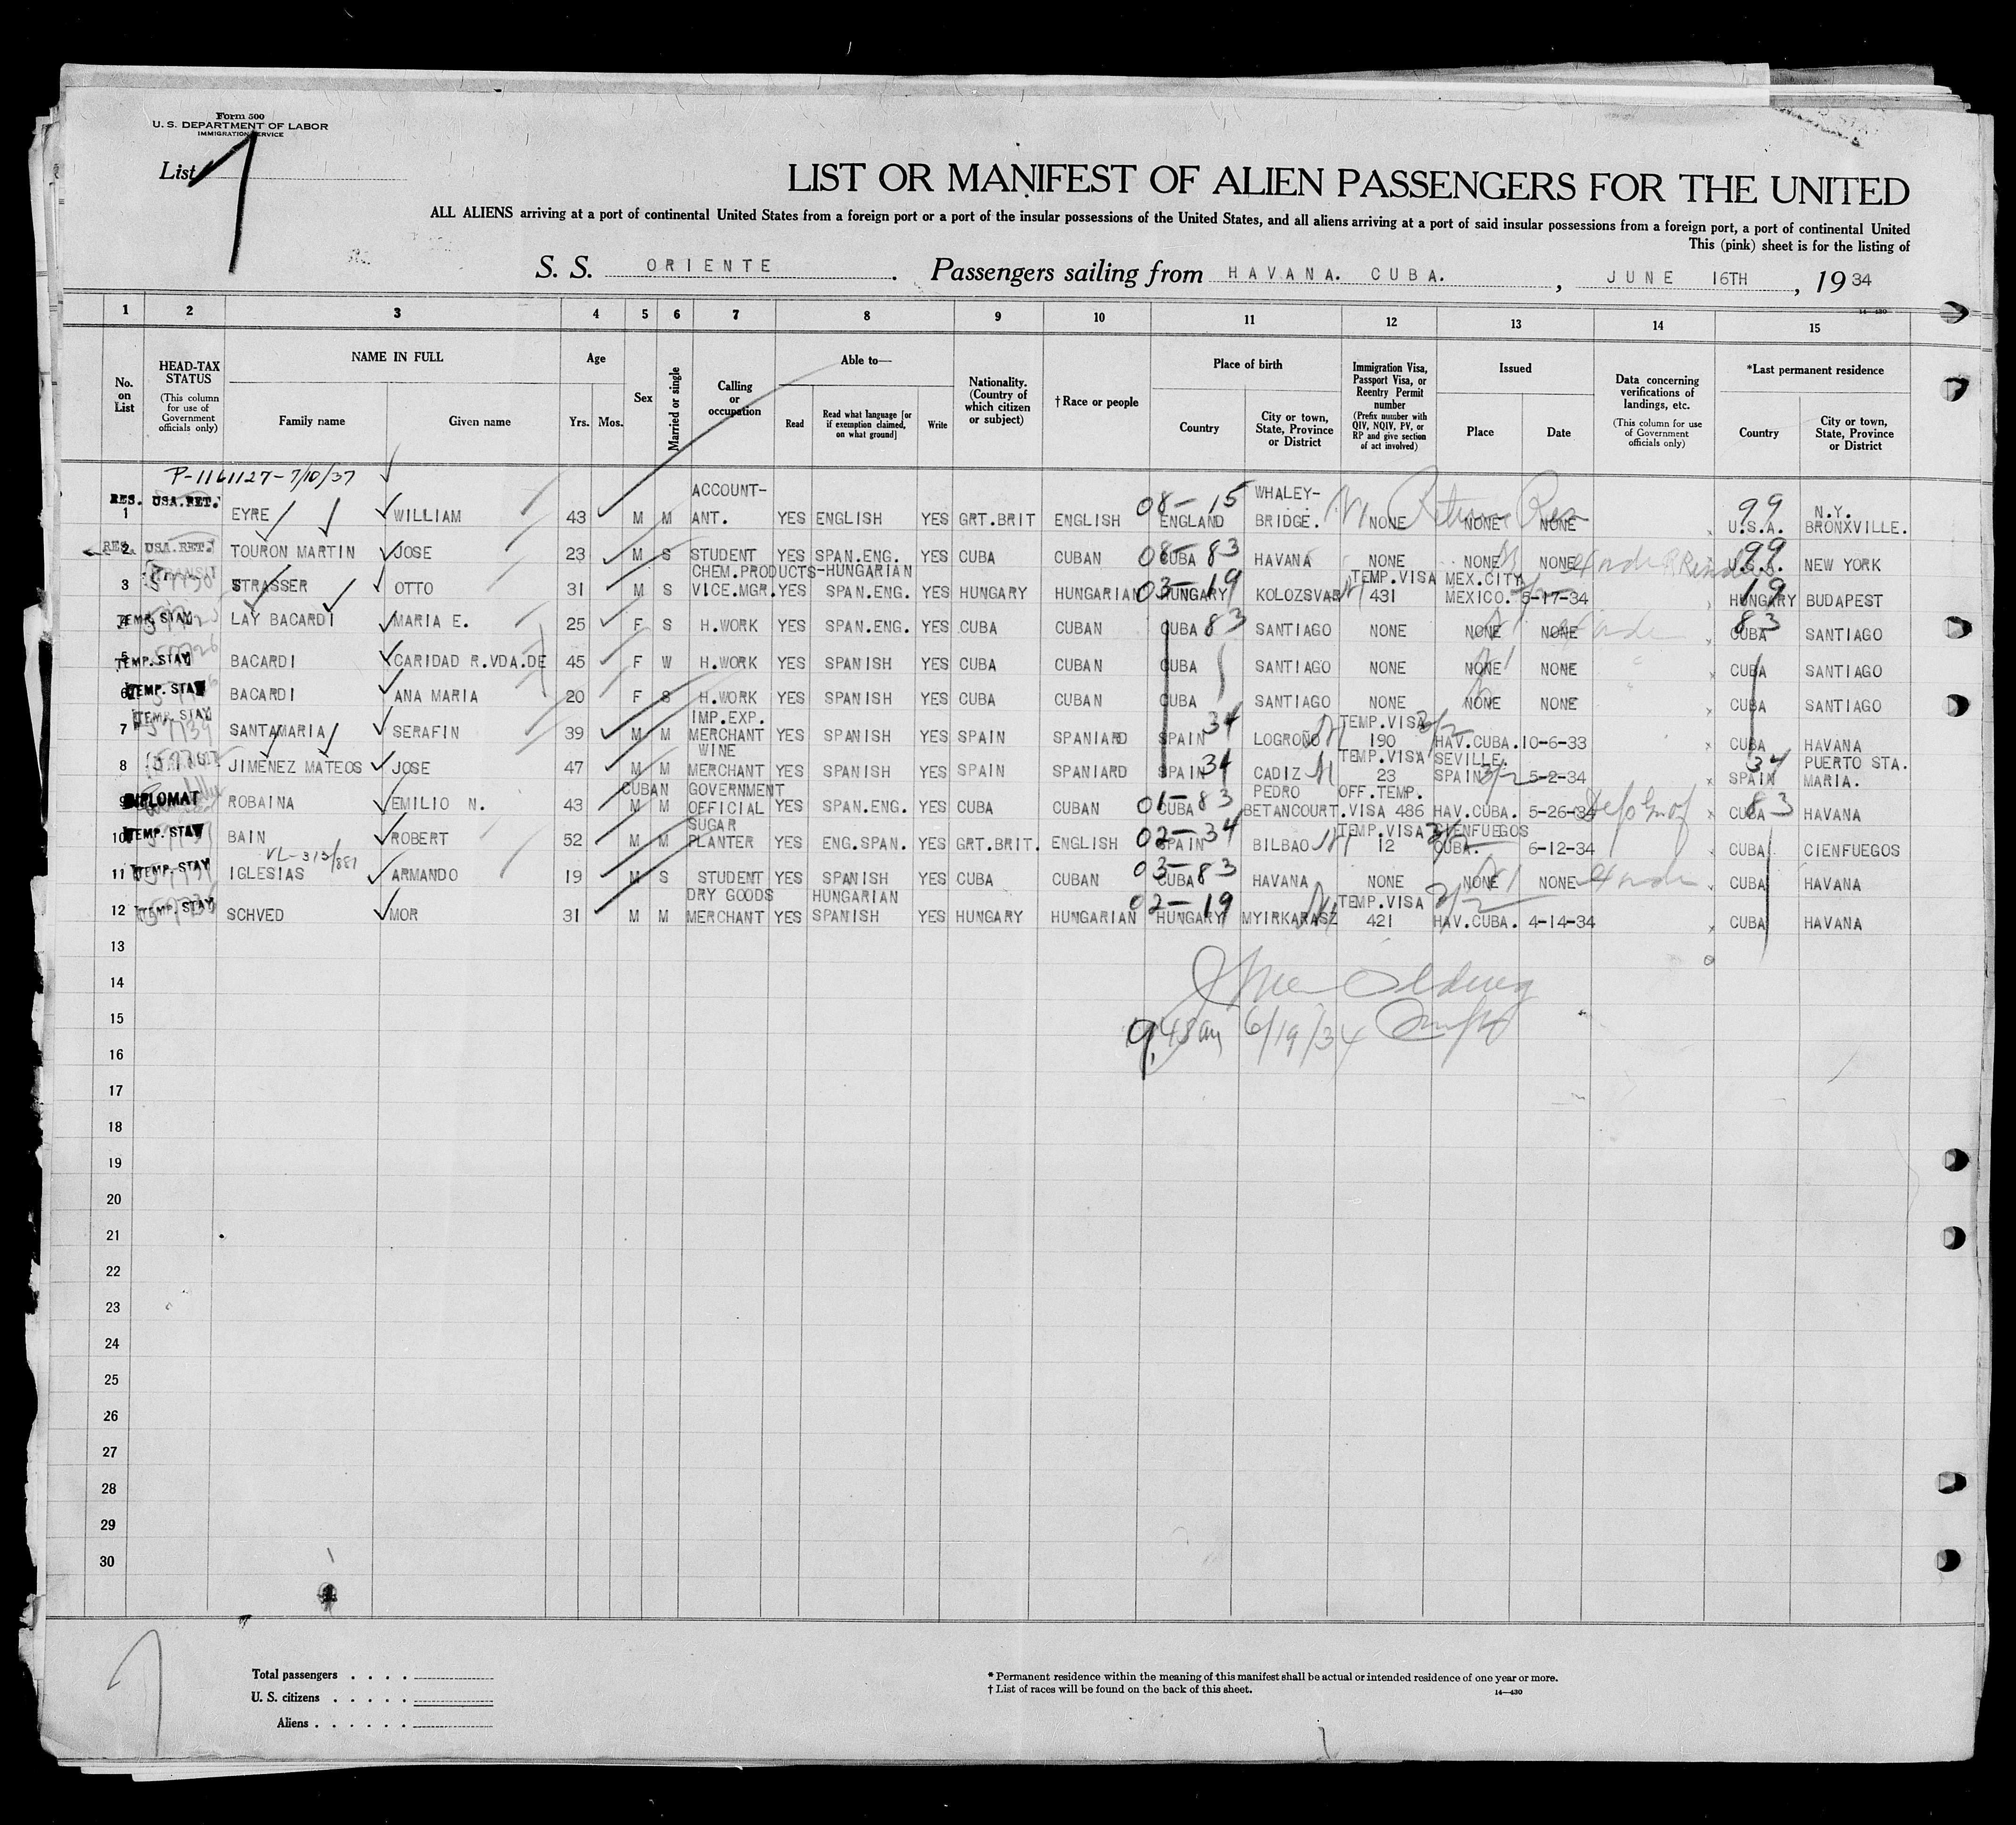 Form 500
U. S. DEPARTMENT OF LABOR
IMMIGRATION SERVICE
List 7
LIST OR MANIFEST OF ALIEN PASSENGERS FOR THE UNITED
ALL ALIENS arriving at a port of continental United States from a foreign port or a port of the insular possessions of the United States, and all aliens arriving at a port of said insular possessions from a foreign port, a port of continental United
This (pink) sheet is for the listing of
S. S. ORIENTE . Passengers sailing from HAVANA. CUBA. , JUNE 16TH , 1934
1 2 3 4 5 6 7 8 9 10 11 12 13 14 15
14—430
No. on List
HEAD-TAX STATUS (This column for use of Government officials only)
NAME IN FULL Family name Given name
Age Yrs. Mos.
Sex
Married or single
Calling or occupation
Able to— Read Read what language [or if exemption claimed, on what ground] Write
Nationality. (Country of which citizen or subject)
†Race or people
Place of birth Country City or town, State, Province or District
Immigration Visa, Passport Visa, or Reentry Permit number (Prefix number with QIV, NQIV, PV, or RP and give section of act involved)
Issued Place Date
Data concerning verifications of landings, etc. (This column for use of Government officials only)
*Last permanent residence Country City or town, State, Province or District
P-1161127-7/10/37
RES. USA.RET. ACCOUNT- 08-15 WHALEY- Return Res 99 N.Y.
1 EYRE WILLIAM 43 M M ANT. YES ENGLISH YES GRT.BRIT ENGLISH ENGLAND BRIDGE. NONE NONE NONE U.S.A. BRONXVILLE.
RES. USA.RET.
2 TOURON MARTIN JOSE 23 M S STUDENT YES SPAN.ENG. YES CUBA CUBAN 08-83 CUBA HAVANA NONE NONE NONE 99 U.S.A. NEW YORK
TRANSIT CHEM.PRODUCTS-HUNGARIAN 03-19 TEMP.VISA MEX.CITY 19
3 STRASSER OTTO 31 M S VICE.MGR. YES SPAN.ENG. YES HUNGARY HUNGARIAN HUNGARY KOLOZSVAR 431 MEXICO. 5-17-34 HUNGARY BUDAPEST
4 TEMP. STAY LAY BACARDI MARIA E. 25 F S H.WORK YES SPAN.ENG. YES CUBA CUBAN CUBA 83 SANTIAGO NONE NONE NONE 83 CUBA SANTIAGO
5 TEMP. STAY BACARDI CARIDAD R.VDA.DE 45 F W H.WORK YES SPANISH YES CUBA CUBAN CUBA SANTIAGO NONE NONE NONE CUBA SANTIAGO
6 TEMP. STAY BACARDI ANA MARIA 20 F S H.WORK YES SPANISH YES CUBA CUBAN CUBA SANTIAGO NONE NONE NONE CUBA SANTIAGO
TEMP. STAY IMP.EXP. 34 TEMP.VISA 3/2
7 SANTAMARIA SERAFIN 39 M M MERCHANT YES SPANISH YES SPAIN SPANIARD SPAIN LOGROÑO 190 HAV.CUBA. 10-6-33 CUBA HAVANA
WINE 34 TEMP.VISA SEVILLE. 34 PUERTO STA.
8 JIMENEZ MATEOS JOSE 47 M M MERCHANT YES SPANISH YES SPAIN SPANIARD SPAIN CADIZ 23 SPAIN 3/2 5-2-34 SPAIN MARIA.
CUBAN GOVERNMENT PEDRO OFF.TEMP.
9 DIPLOMAT ROBAINA EMILIO N. 43 M M OFFICIAL YES SPAN.ENG. YES CUBA CUBAN 01-83 CUBA BETANCOURT. VISA 486 HAV.CUBA. 5-26-34 83 CUBA HAVANA
SUGAR 02-34 TEMP.VISA CIENFUEGOS
10 TEMP. STAY BAIN ROBERT 52 M M PLANTER YES ENG.SPAN. YES GRT.BRIT. ENGLISH SPAIN BILBAO 12 CUBA. 6-12-34 CUBA CIENFUEGOS
VL-313/881
11 TEMP. STAY IGLESIAS ARMANDO 19 M S STUDENT YES SPANISH YES CUBA CUBAN 03-83 CUBA HAVANA NONE NONE NONE CUBA HAVANA
DRY GOODS HUNGARIAN 02-19 TEMP.VISA 3/2
12 TEMP. STAY SCHVED MOR 31 M M MERCHANT YES SPANISH YES HUNGARY HUNGARIAN HUNGARY MYIRKARASZ 421 HAV.CUBA. 4-14-34 CUBA HAVANA
13
14
15 9.45am 6/19/34
16
17
18
19
20
21
22
23
24
25
26
27
28
29
30
7
Total passengers . . . .
U. S. citizens . . . . .
Aliens . . . . . .
* Permanent residence within the meaning of this manifest shall be actual or intended residence of one year or more.
† List of races will be found on the back of this sheet.
14—430